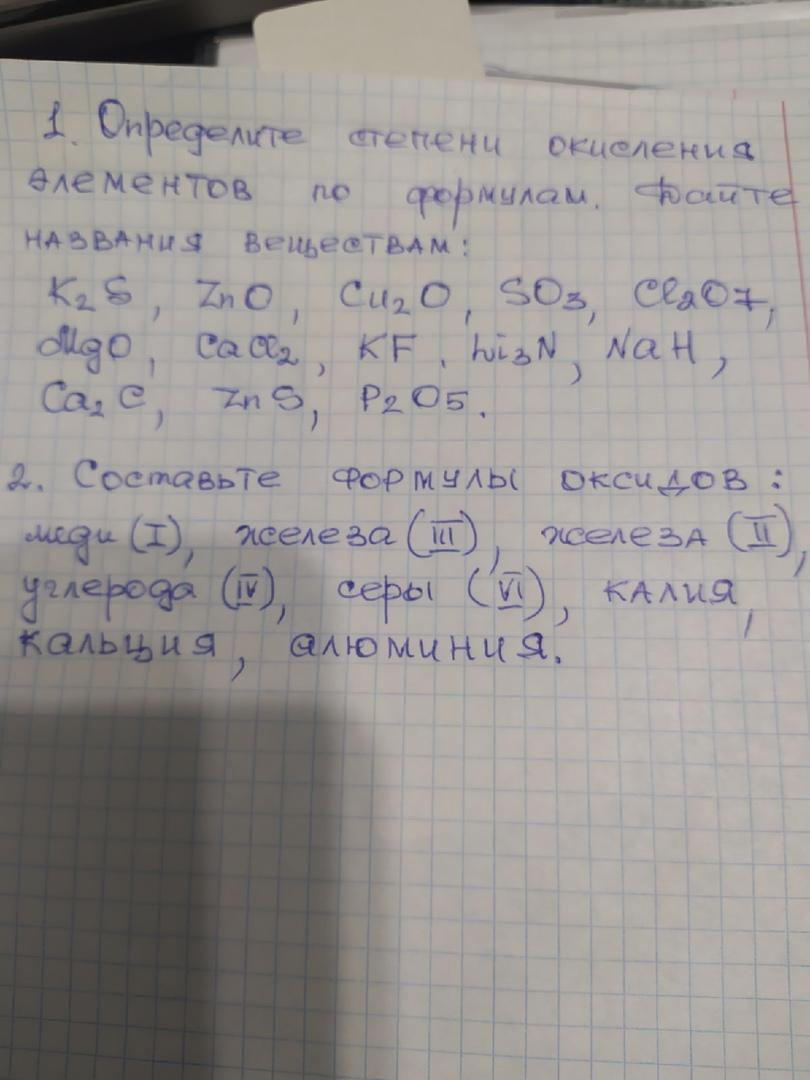 1. Определите степени окисления
элементов по формулам. Дайте
названия веществам:
K₂S, ZnO, Cu₂O, SO₃, Cl₂O₇,
MgO, CaCl₂, KF, Li₃N, NaH,
Ca₂C, ZnS, P₂O₅.
2. Составьте формулы оксидов:
меди (I), железа (III), железа (II),
углерода (IV), серы (VI), калия,
кальция, алюминия.